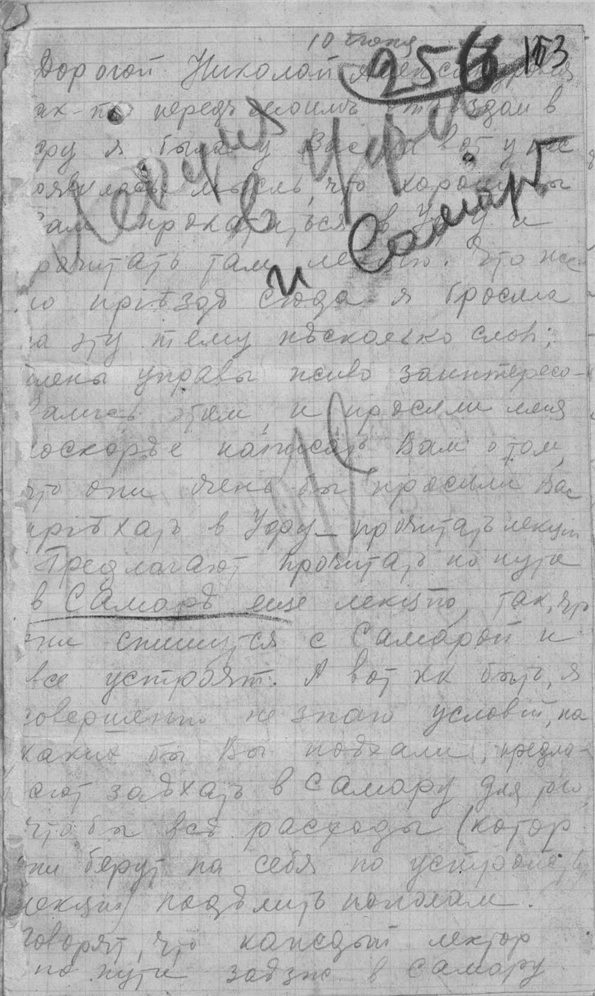 10 июня
256 113
Дорогой Николай Александрович
как-то передъ моимъ отъездом в
Уфу я была у Вас и вот у нас
появилась мысль, что хорошо бы
Вам прокатиться в Уфу и
прочитать там лекцию. Что же
по прiѣзде сюда я бросила
на эту тему нѣсколько слов;
члены управы живо заинтересо-
вались этим и просили меня
поскорѣе написать Вам о том,
что они очень бы просили Вас
прiѣхать в Уфу прочитать лекцiи
Предлагают прочитать по пути
в Самарѣ еще лекцiю, так, что
они спишутся с Самарой и
все устроят. А вот как быть, я
совершенно не знаю условiй, на
каких бы Вы поѣхали, предла-
гают заѣхать в Самару для того
чтобы всѣ расходы (котор
они берут на себя по устройству
лекцiи) подѣлить пополам.
Говорят, что каждый лектор
по пути заѣзж в Самару
Лекция в Уфѣ
и Самарѣ